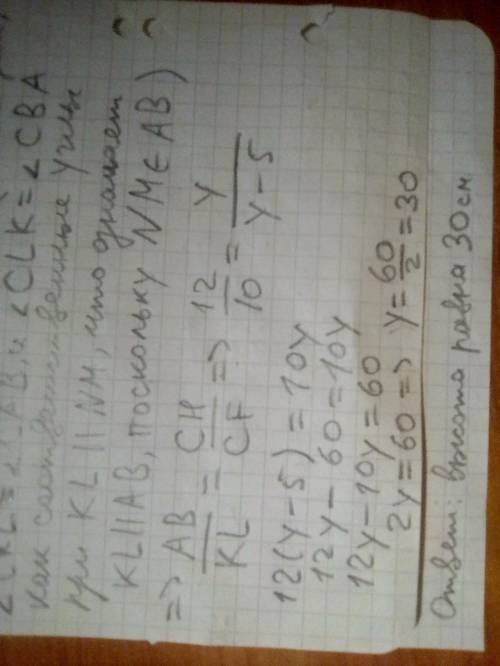 ∠CKL = ∠CAB, и ∠CLK = ∠CBA
как соответственные углы
при KL || NM, что означает
KL || AB, поскольку NM ∈ AB)
=> AB/KL = CH/CF => 12/10 = y/(y-5)
12(y-5) = 10y
12y - 60 = 10y
12y - 10y = 60
2y = 60 => y = 60/2 = 30
Ответ: высота равна 30 см.